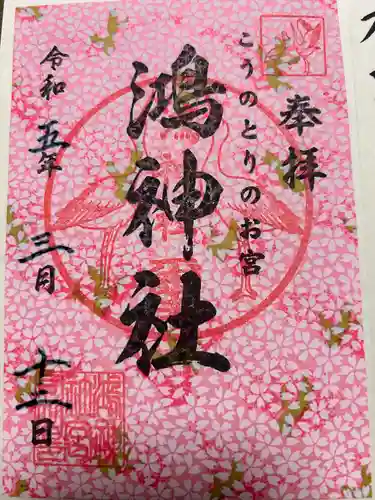 奉拝
こうのとりのお宮
鴻神社
令和五年三月十二日